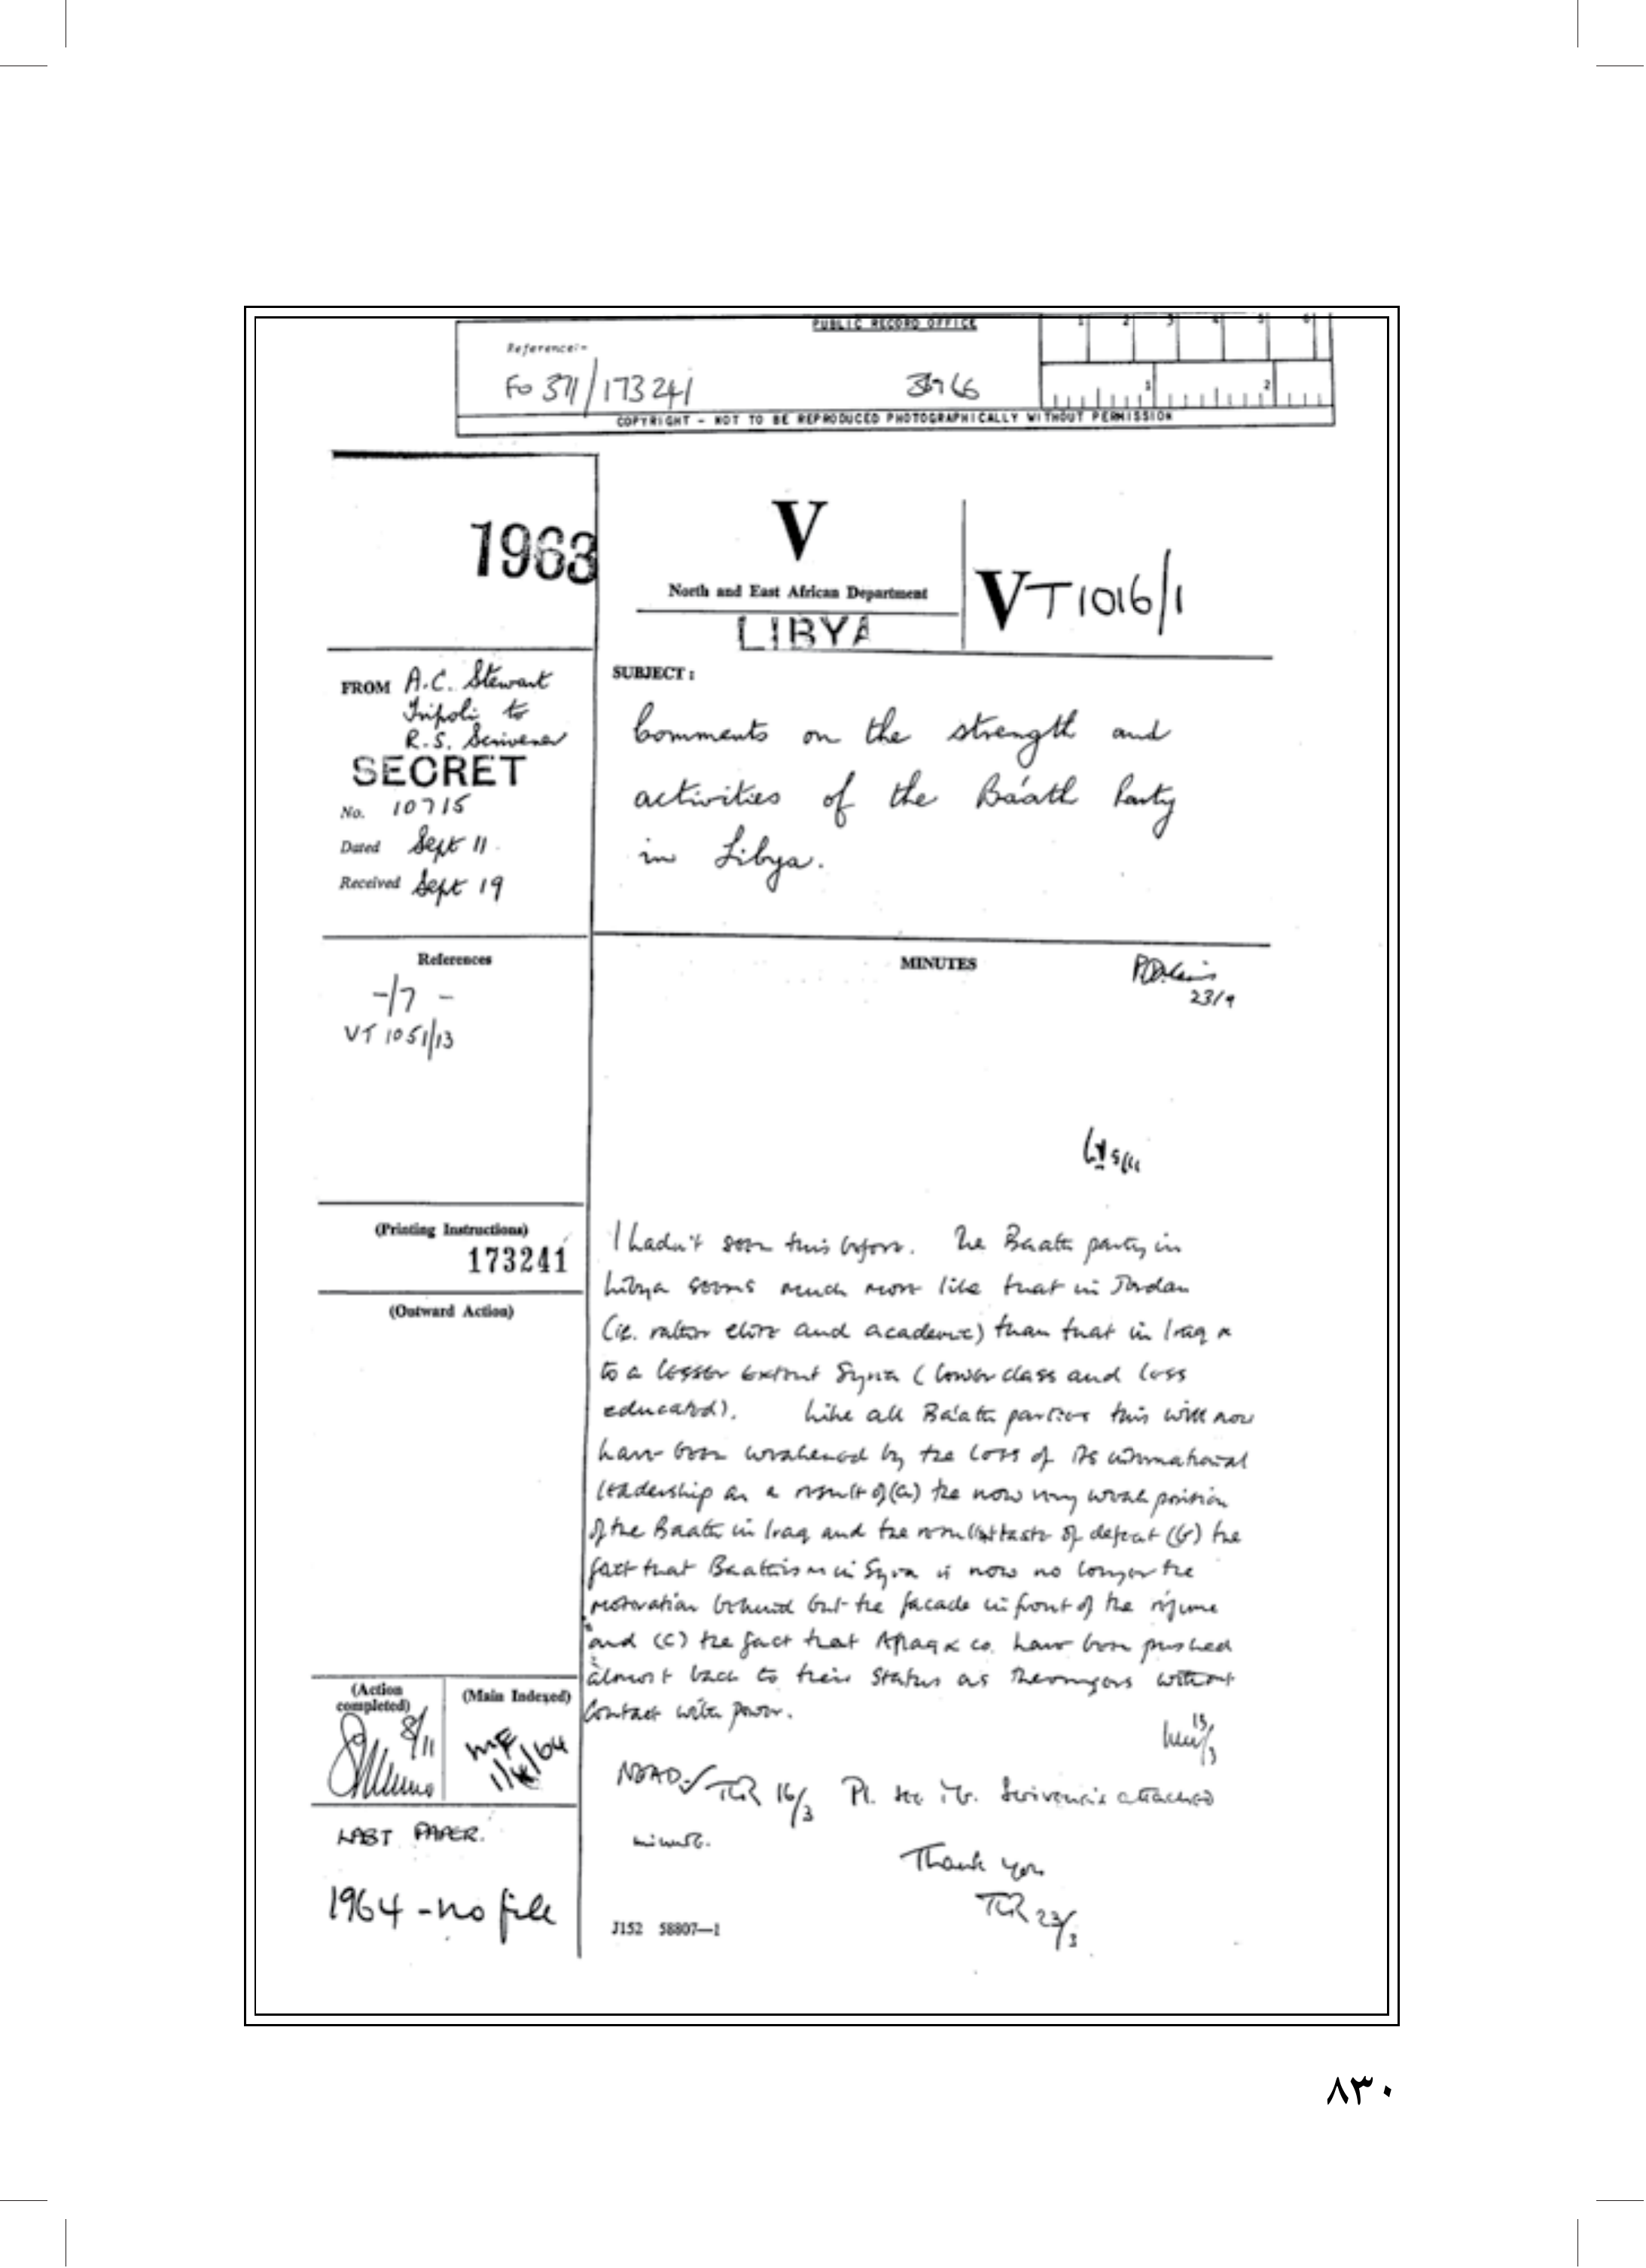 PUBLIC RECORD OFFICE
1 2 3 4 5 6
Reference:-
FO 371/173241
1 2
COPYRIGHT - NOT TO BE REPRODUCED PHOTOGRAPHICALLY WITHOUT PERMISSION
1963
V
North and East African Department
LIBYA
VT1016/1
FROM A.C. Stewart
Tripoli to
R.S. Scrivener
SECRET
No. 10715
Dated Sept 11.
Received Sept 19
SUBJECT:
Comments on the strength and
activities of the Ba'ath Party
in Libya.
References
-/7 -
VT 1051/13
MINUTES
23/9
(Printing Instructions)
173241
(Outward Action)
I hadn't seen this before. The Baath party in
Libya seems much more like that in Jordan
(ie. rather elite and academic) than that in Iraq &
to a lesser extent Syria (lower class and less
educated). Like all Ba'ath parties this will now
have been weakened by the loss of its international
leadership as a result of (a) the now very weak position
of the Baath in Iraq and the resultant taste of defeat (b) the
fact that Baathism in Syria is now no longer the
motivation behind but the facade in front of the régime
and (c) the fact that Aflaq & co. have been pushed
almost back to their status as theorisers without
contact with power.
15/3
(Action completed)
8/11
(Main Indexed)
LAST PAPER.
1964 - no file
NEAD. TCR 16/3 Pl. see Mr. Scrivener's attached
minute.
Thank you
TCR 23/3
J152 58807—1
٨٣٠